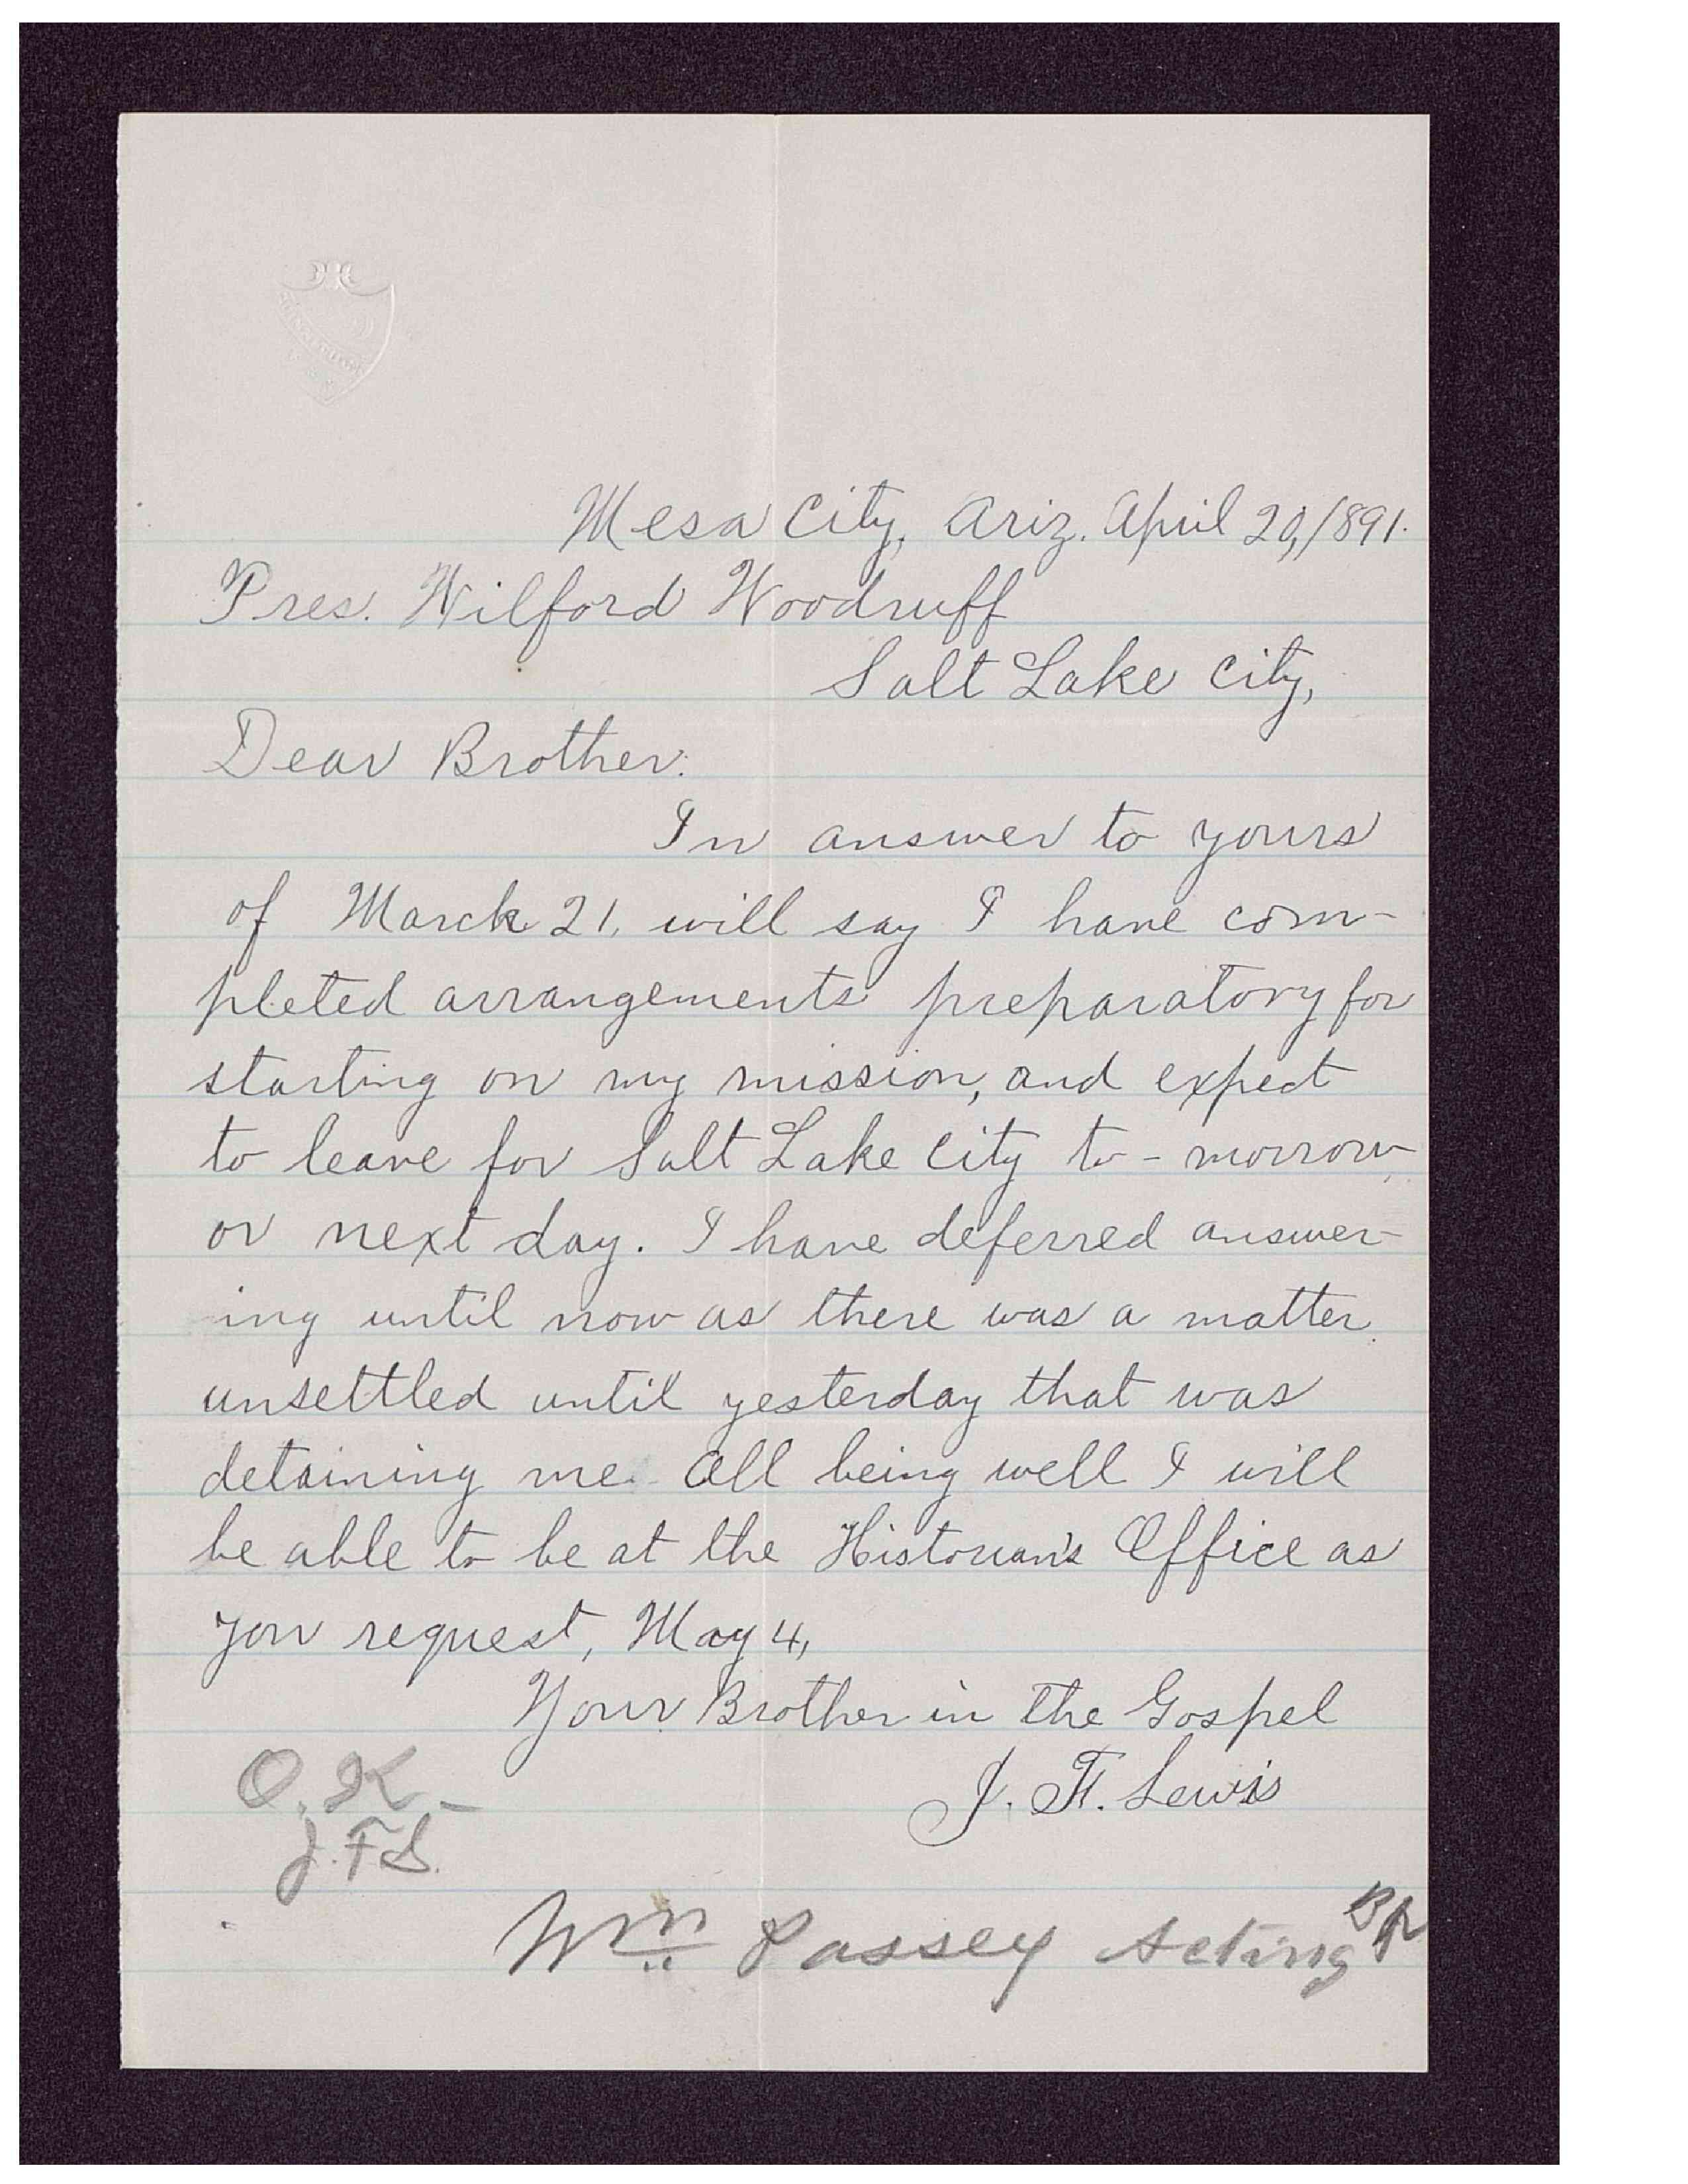 Mesa City, Ariz. April 20, 1891.
Pres. Wilford Woodruff
Salt Lake City,
Dear Brother:
In answer to yours
of March 21, will say I have com-
pleted arrangements preparatory for
starting on my mission, and expect
to leave for Salt Lake City to-morrow
or next day. I have deferred answer-
ing until now as there was a matter
unsettled until yesterday that was
detaining me. All being well I will
be able to be at the Historian's Office as
you request, May 4,
Your Brother in the Gospel
J. F. Lewis
O.K.
J.F.S.
Wm Passey Acting Bp